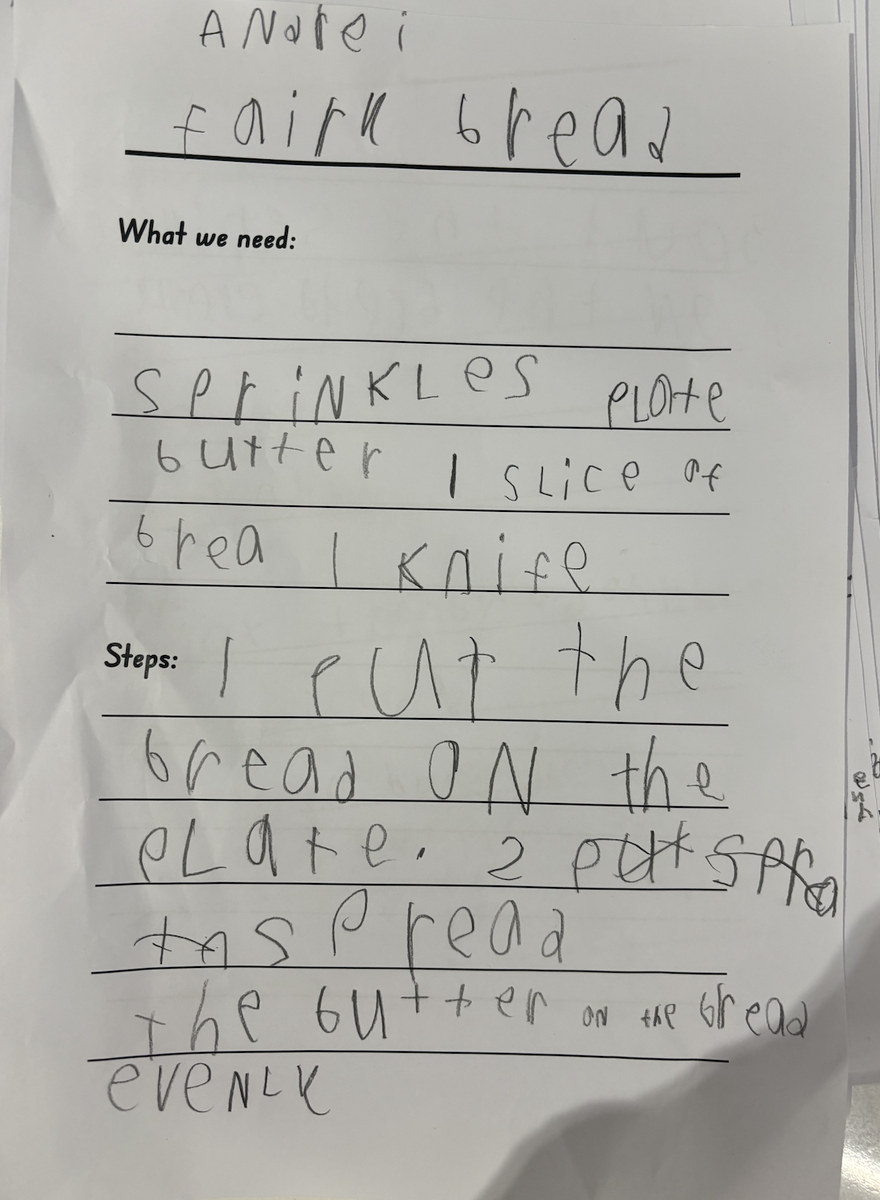 ANdrei
fairy bread
What we need:
spriNKLes pLate
butter 1 sLice of
brea 1 Knife
Steps: 1 put the
bread ON the
pLate. 2
spread
the butter oN the bread
eveNLy